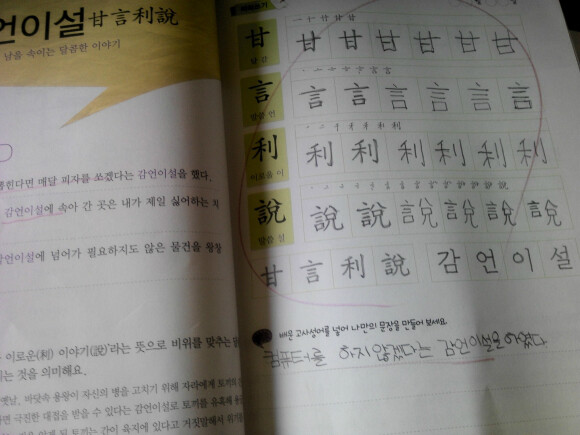 언이설 甘言利說
남을 속이는 달콤한 이야기
힌다면 매달 피자를 쏘겠다는 감언이설을 했다.
감언이설에 속아 간 곳은 내가 제일 싫어하는 치
감언이설에 넘어가 필요하지도 않은 물건을 왕창
이로운(利) 이야기(說)라는 뜻으로 비위를 맞추는
는 것을 의미해요.
옛날, 바닷속 용왕이 자신의 병을 고치기 위해 자라에게 토끼의
면 극진한 대접을 받을 수 있다는 감언이설로 토끼를 유혹해
토끼는 간이 육지에 있다고 거짓말해서 위기
따라쓰기
甘 甘 甘 甘 甘 甘 甘
달 감
言 言 言 言 言 言 言
말씀 언
利 利 利 利 利 利 利
이로울 이
說 說 說 說 說 說 說
말씀 설
甘 言 利 說 감 언 이 설
배운 고사성어를 넣어 나만의 문장을 만들어 보세요.
컴퓨터를 하지 않겠다는 감언이설로 하였다